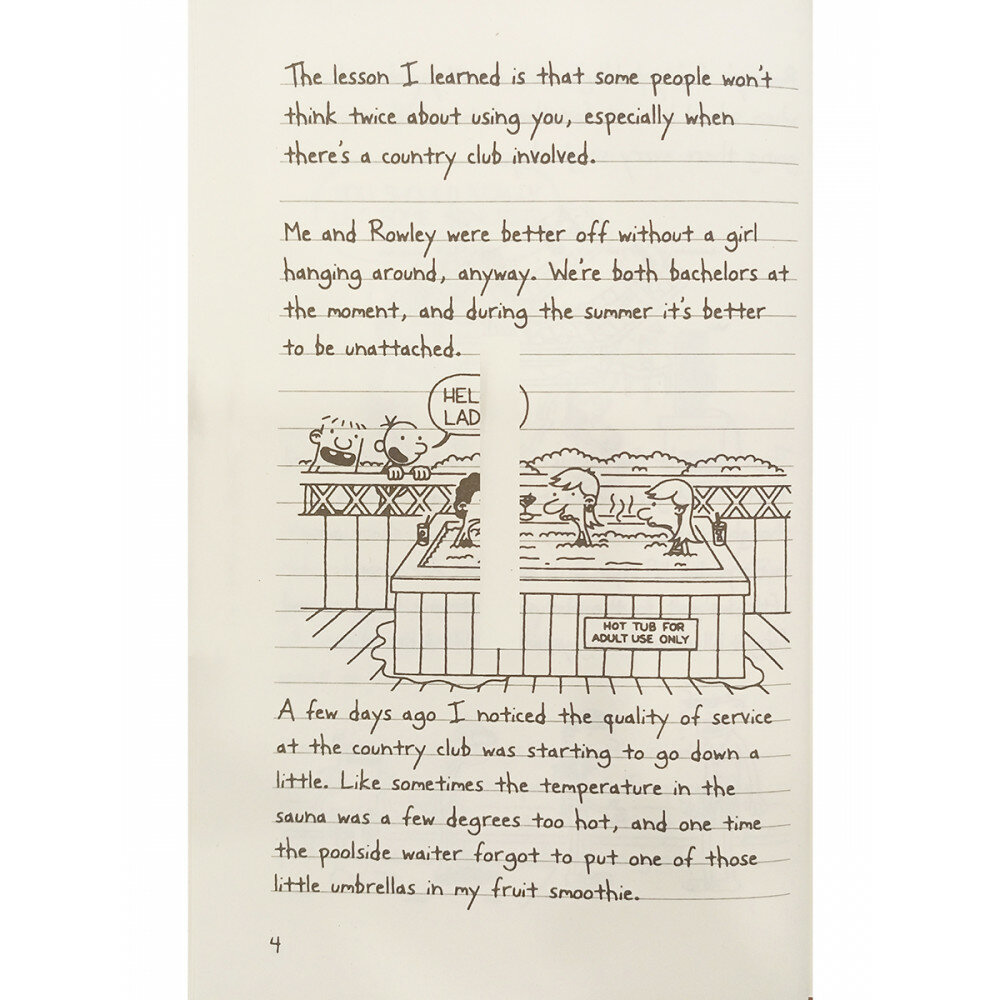 The lesson I learned is that some people won't
think twice about using you, especially when
there's a country club involved.
Me and Rowley were better off without a girl
hanging around, anyway. We're both bachelors at
the moment, and during the summer it's better
to be unattached.
HOT TUB FOR
ADULT USE ONLY
A few days ago I noticed the quality of service
at the country club was starting to go down a
little. Like sometimes the temperature in the
sauna was a few degrees too hot, and one time
the poolside waiter forgot to put one of those
little umbrellas in my fruit smoothie.
4